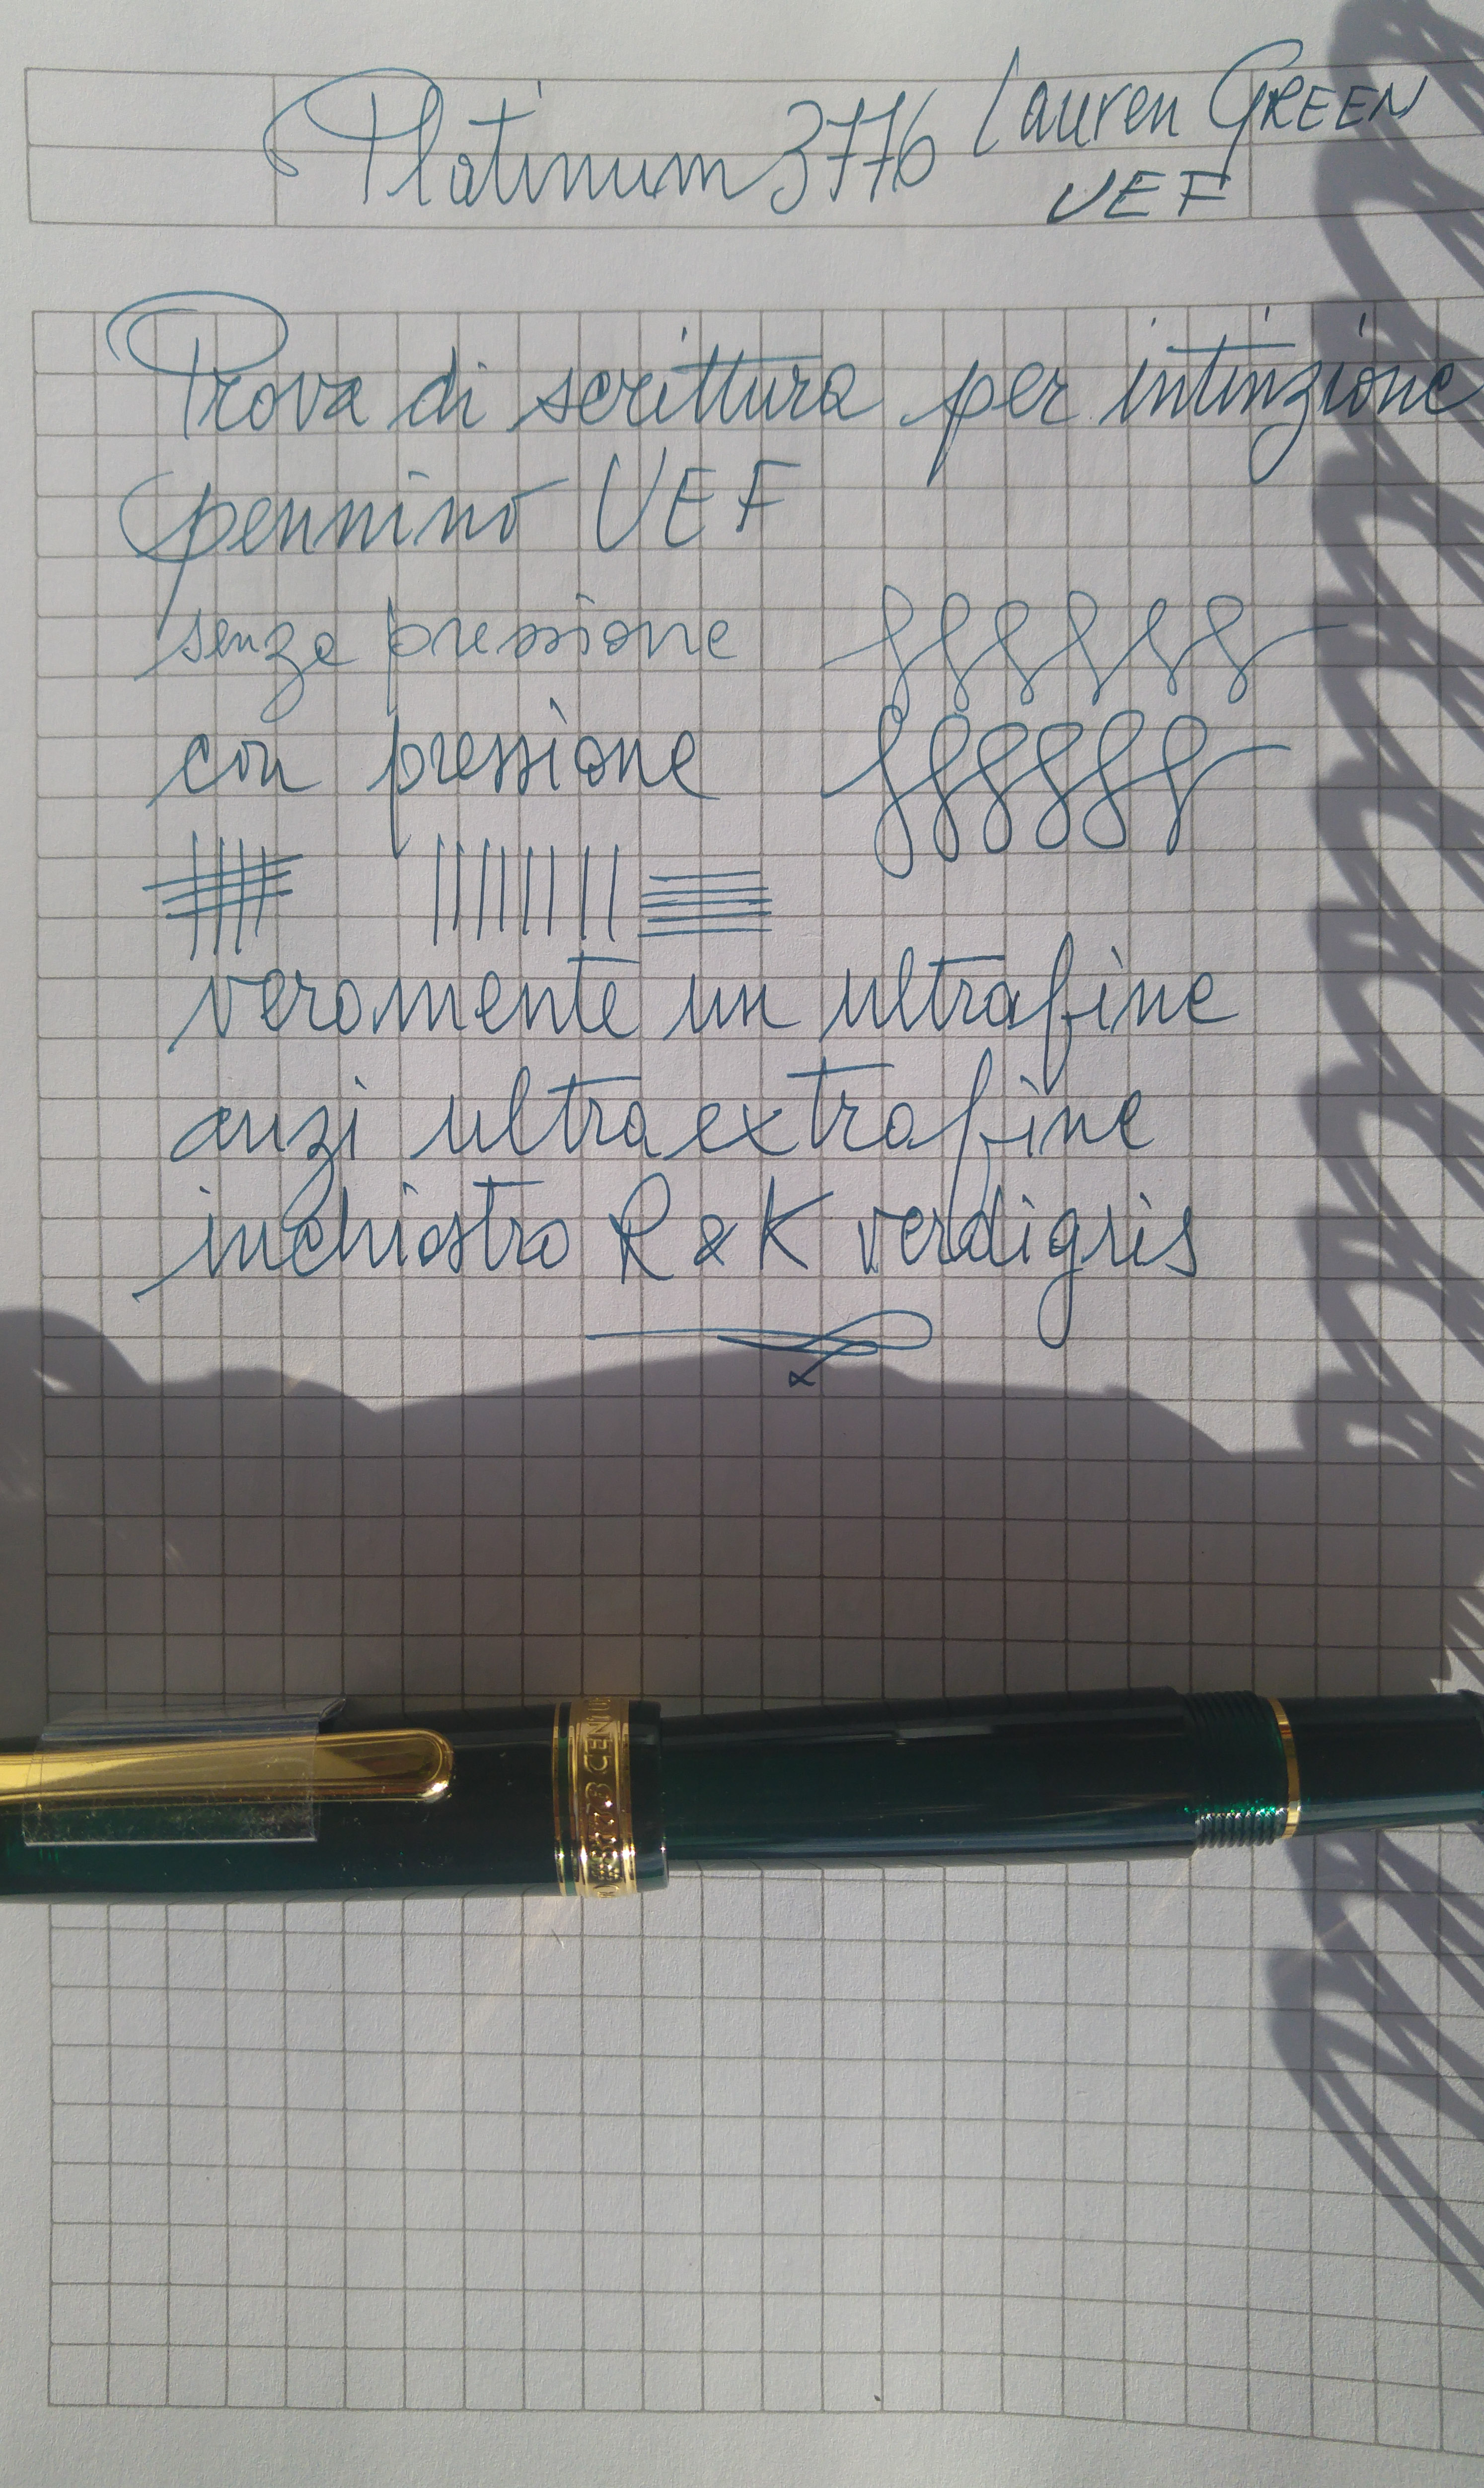 Platinum 3776 Lauren GREEN
UEF
Prova di scrittura per intinzione
pennino UEF
senza pressione
con pressione
veramente un ultrafine
anzi ultra extrafine
inchiostro R & K verdigris
#3776 CENTU